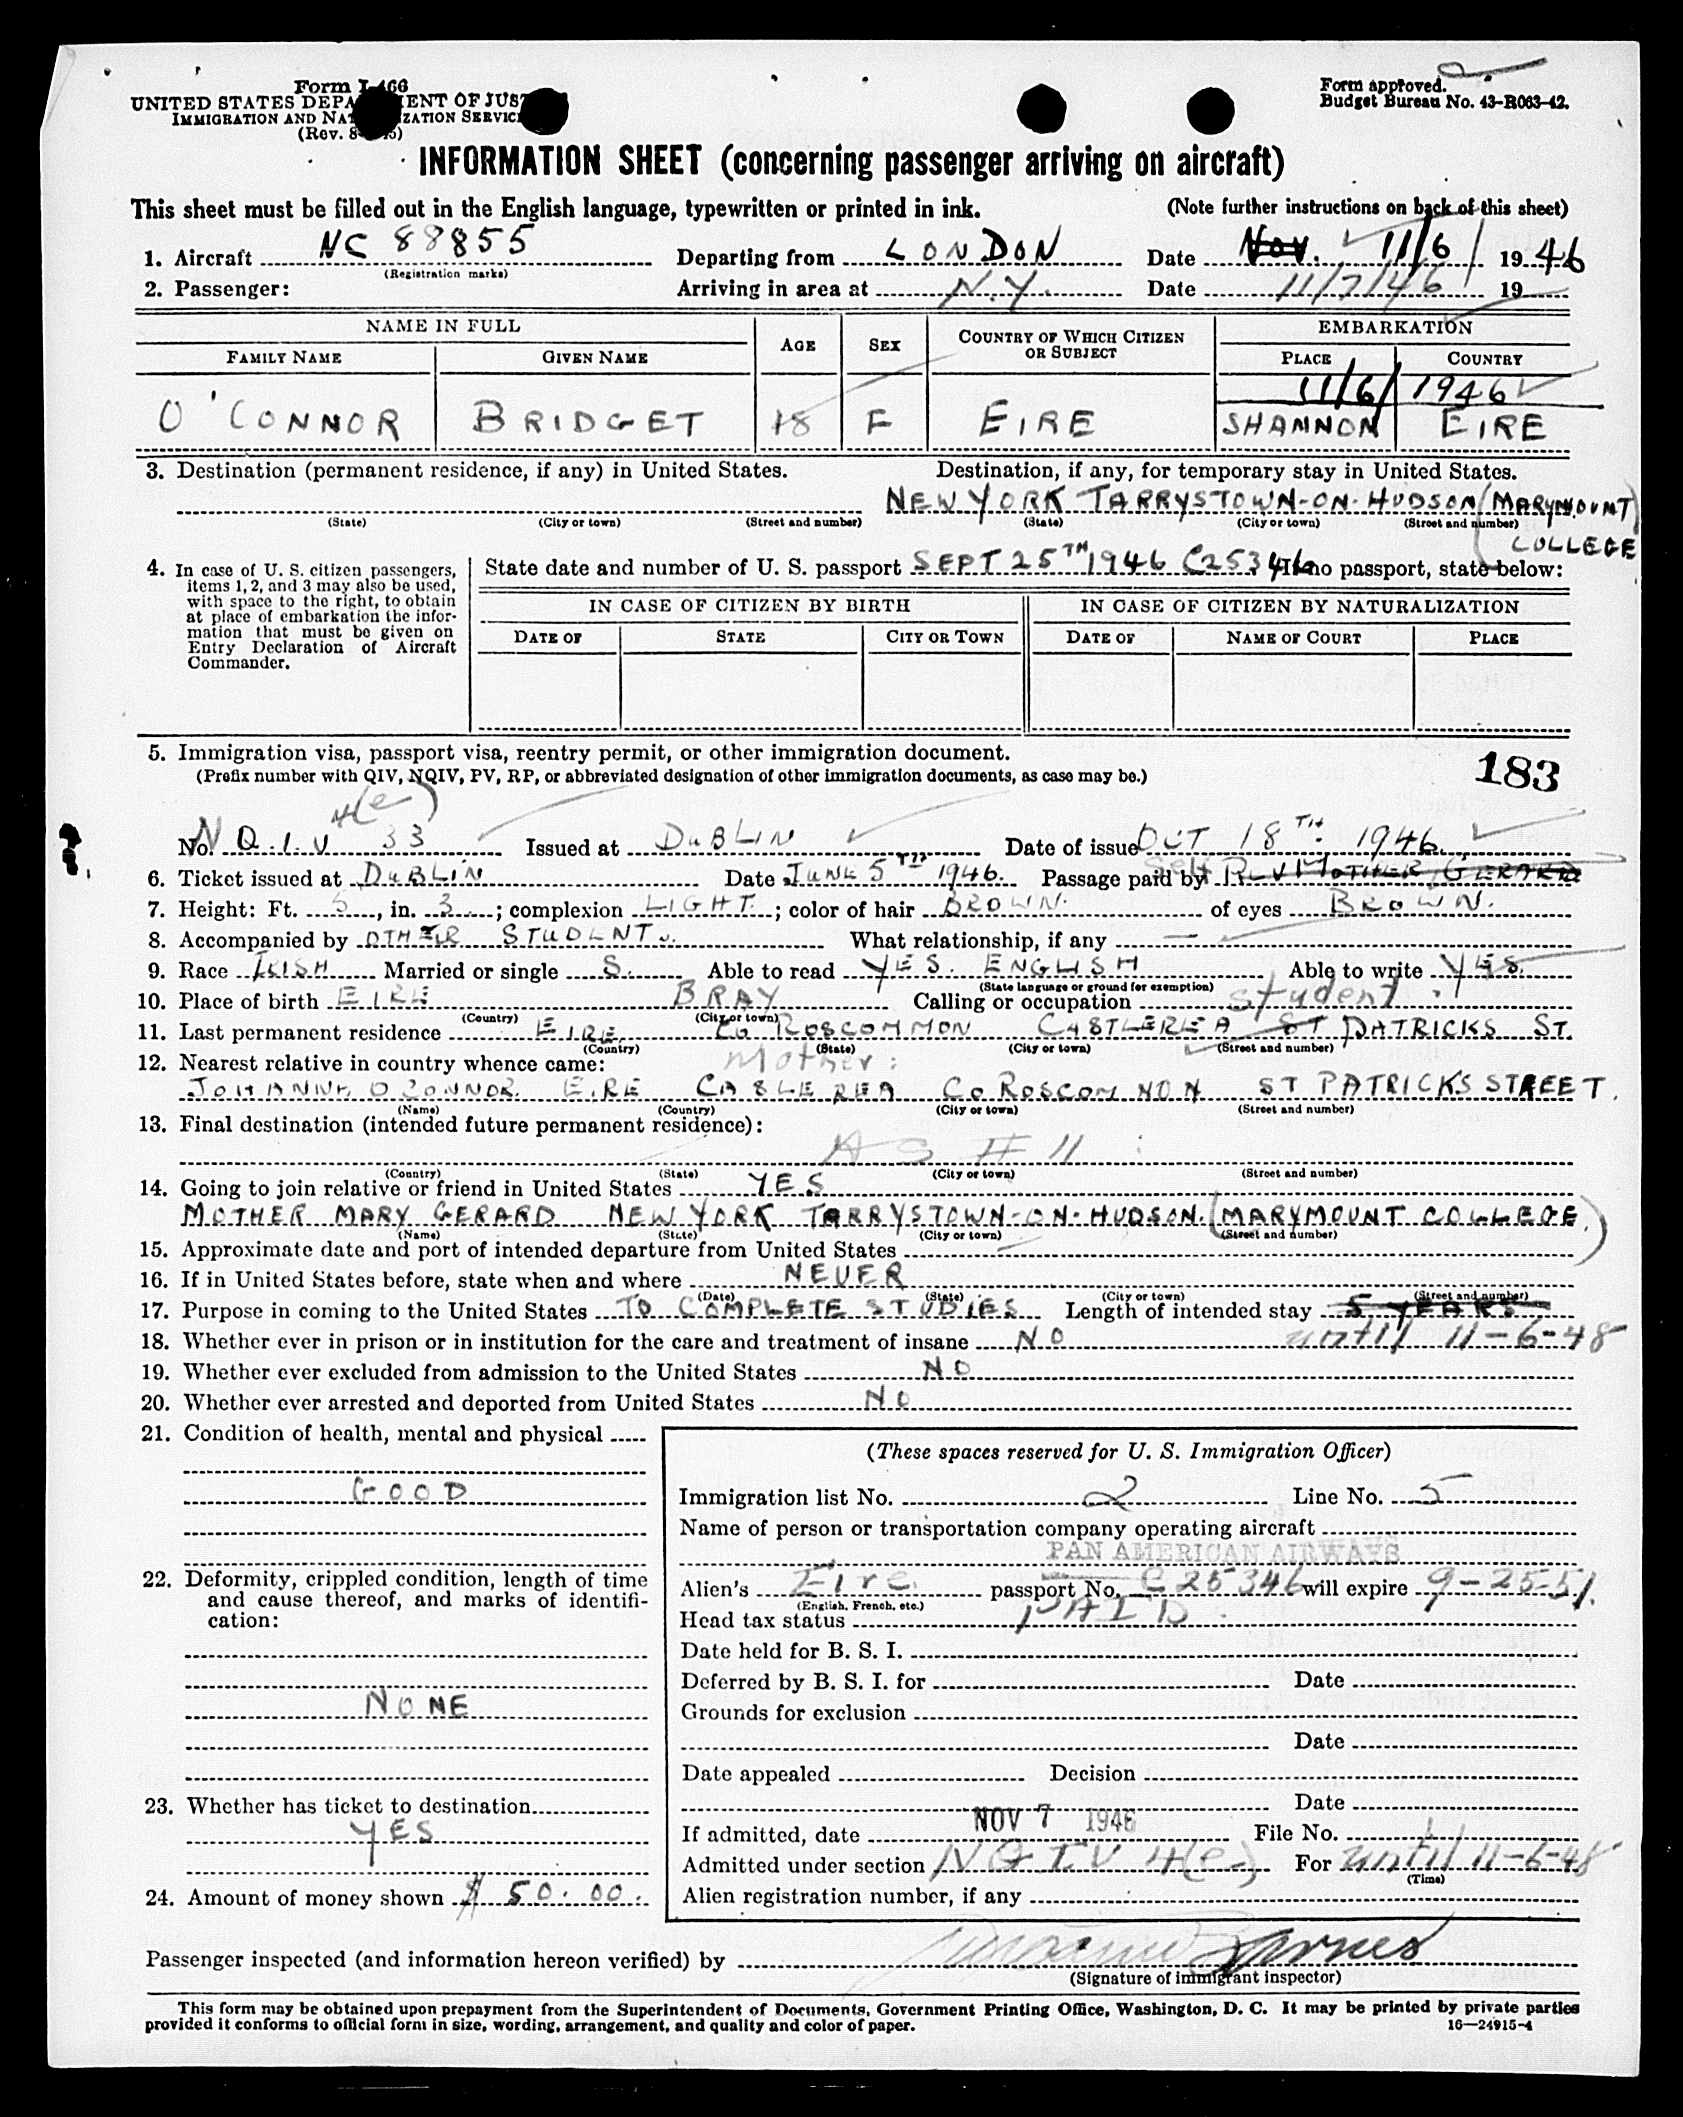 Form I-466
UNITED STATES DEPARTMENT OF JUSTICE
IMMIGRATION AND NATURALIZATION SERVICE
(Rev. 8-
Form approved.
Budget Bureau No. 43-R063-42.
INFORMATION SHEET (concerning passenger arriving on aircraft)
This sheet must be filled out in the English language, typewritten or printed in ink. (Note further instructions on back of this sheet)
1. Aircraft NC 88855 Departing from LONDON Date Nov. 11/6/ 1946
(Registration marks)
2. Passenger: Arriving in area at N.Y. Date 11/7/46 19
NAME IN FULL AGE SEX COUNTRY OF WHICH CITIZEN OR SUBJECT EMBARKATION
FAMILY NAME GIVEN NAME PLACE COUNTRY
11/6/1946
O'CONNOR BRIDGET 18 F EIRE SHANNON EIRE
3. Destination (permanent residence, if any) in United States. Destination, if any, for temporary stay in United States.
NEW YORK TARRYSTOWN-ON-HUDSON (MARYMOUNT COLLEGE)
(State) (City or town) (Street and number) (State) (City or town) (Street and number)
4. In case of U. S. citizen passengers, items 1, 2, and 3 may also be used, with space to the right, to obtain at place of embarkation the information that must be given on Entry Declaration of Aircraft Commander.
State date and number of U. S. passport SEPT 25TH 1946 C25346 If no passport, state below:
IN CASE OF CITIZEN BY BIRTH IN CASE OF CITIZEN BY NATURALIZATION
DATE OF STATE CITY OR TOWN DATE OF NAME OF COURT PLACE
5. Immigration visa, passport visa, reentry permit, or other immigration document.
(Prefix number with QIV, NQIV, PV, RP, or abbreviated designation of other immigration documents, as case may be.)
183
4(e)
No. N Q.I.V 33 Issued at DUBLIN Date of issue OCT 18TH 1946.
6. Ticket issued at DUBLIN Date JUNE 5TH 1946. Passage paid by Self REV MOTHER GERARD
7. Height: Ft. 5, in. 3; complexion LIGHT; color of hair BROWN. of eyes BROWN.
8. Accompanied by OTHER STUDENTS. What relationship, if any —
9. Race IRISH Married or single S. Able to read YES. ENGLISH Able to write YES.
(State language or ground for exemption)
10. Place of birth EIRE BRAY Calling or occupation student.
(Country) (City or town)
11. Last permanent residence EIRE Co ROSCOMMON CASTLEREA ST PATRICKS ST.
(Country) (State) (City or town) (Street and number)
12. Nearest relative in country whence came: Mother:
JOHANNA O CONNOR. EIRE CASLEREA CO ROSCOMMON ST PATRICKS STREET.
(Name) (Country) (City or town) (Street and number)
13. Final destination (intended future permanent residence):
AS # 11
(Country) (State) (City or town) (Street and number)
14. Going to join relative or friend in United States YES
MOTHER MARY GERARD NEW YORK TARRYSTOWN-ON-HUDSON. (MARYMOUNT COLLEGE.)
(Name) (State) (City or town) (Street and number)
15. Approximate date and port of intended departure from United States —
16. If in United States before, state when and where NEVER
(Date) (State) (City or town) (Street and number)
17. Purpose in coming to the United States TO COMPLETE STUDIES Length of intended stay 5 YEARS
18. Whether ever in prison or in institution for the care and treatment of insane NO until 11-6-48
19. Whether ever excluded from admission to the United States NO
20. Whether ever arrested and deported from United States NO
21. Condition of health, mental and physical
GOOD
22. Deformity, crippled condition, length of time and cause thereof, and marks of identification:
NONE
23. Whether has ticket to destination
YES
24. Amount of money shown $50.00.
(These spaces reserved for U. S. Immigration Officer)
Immigration list No. 2 Line No. 5
Name of person or transportation company operating aircraft
PAN AMERICAN AIRWAYS
Alien's Eire passport No. C 25346 will expire 9-25-51.
(English, French, etc.)
Head tax status PAID
Date held for B. S. I.
Deferred by B. S. I. for Date
Grounds for exclusion
Date
Date appealed Decision
Date
If admitted, date NOV 7 1946 File No.
Admitted under section NQIV 4(e) For until 11-6-48
(Time)
Alien registration number, if any
Passenger inspected (and information hereon verified) by
(Signature of immigrant inspector)
This form may be obtained upon prepayment from the Superintendent of Documents, Government Printing Office, Washington, D. C. It may be printed by private parties
provided it conforms to official form in size, wording, arrangement, and quality and color of paper. 16—24915-4